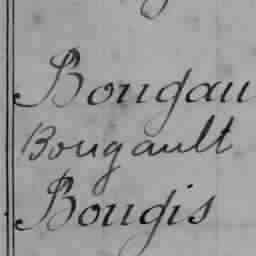 Bougau
Bougault
Bougis